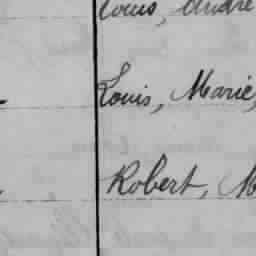 Louis, André
Louis, Marie,
Robert, M